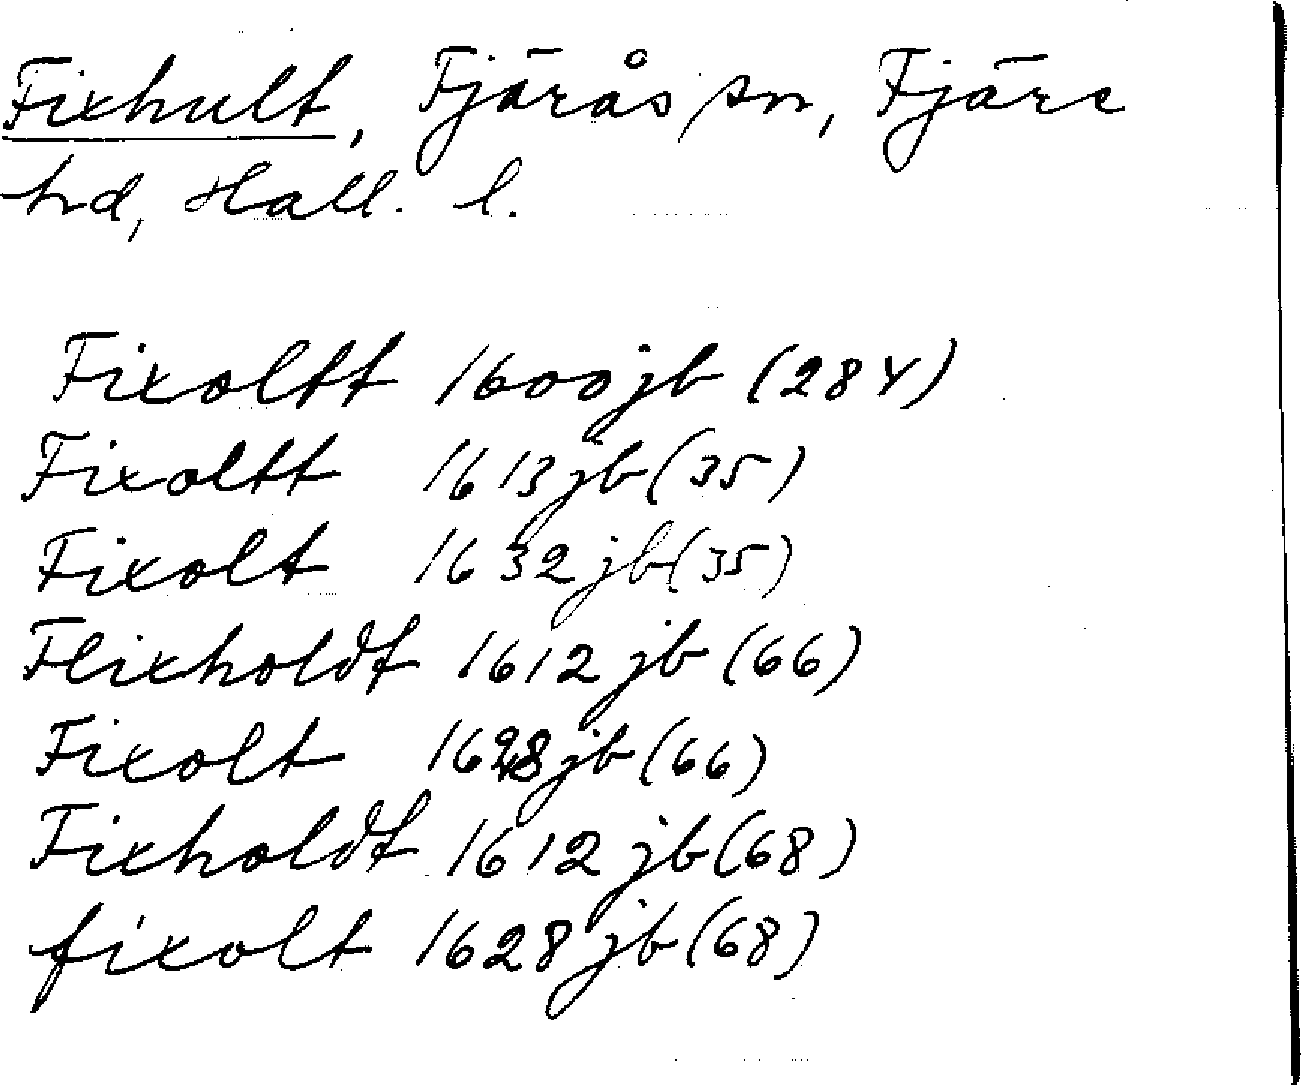 Fixhult, Fjärås sn, Fjäre
hd, Hall. l.
Fixoltt 1600 jb (284)
Fixoltt 1613 jb (35)
Fixolt 1632 jb (35)
Flixholdt 1612 jb (66)
Fixolt 1628 jb (66)
Fixholdt 1612 jb (68)
fixolt 1628 jb (68)